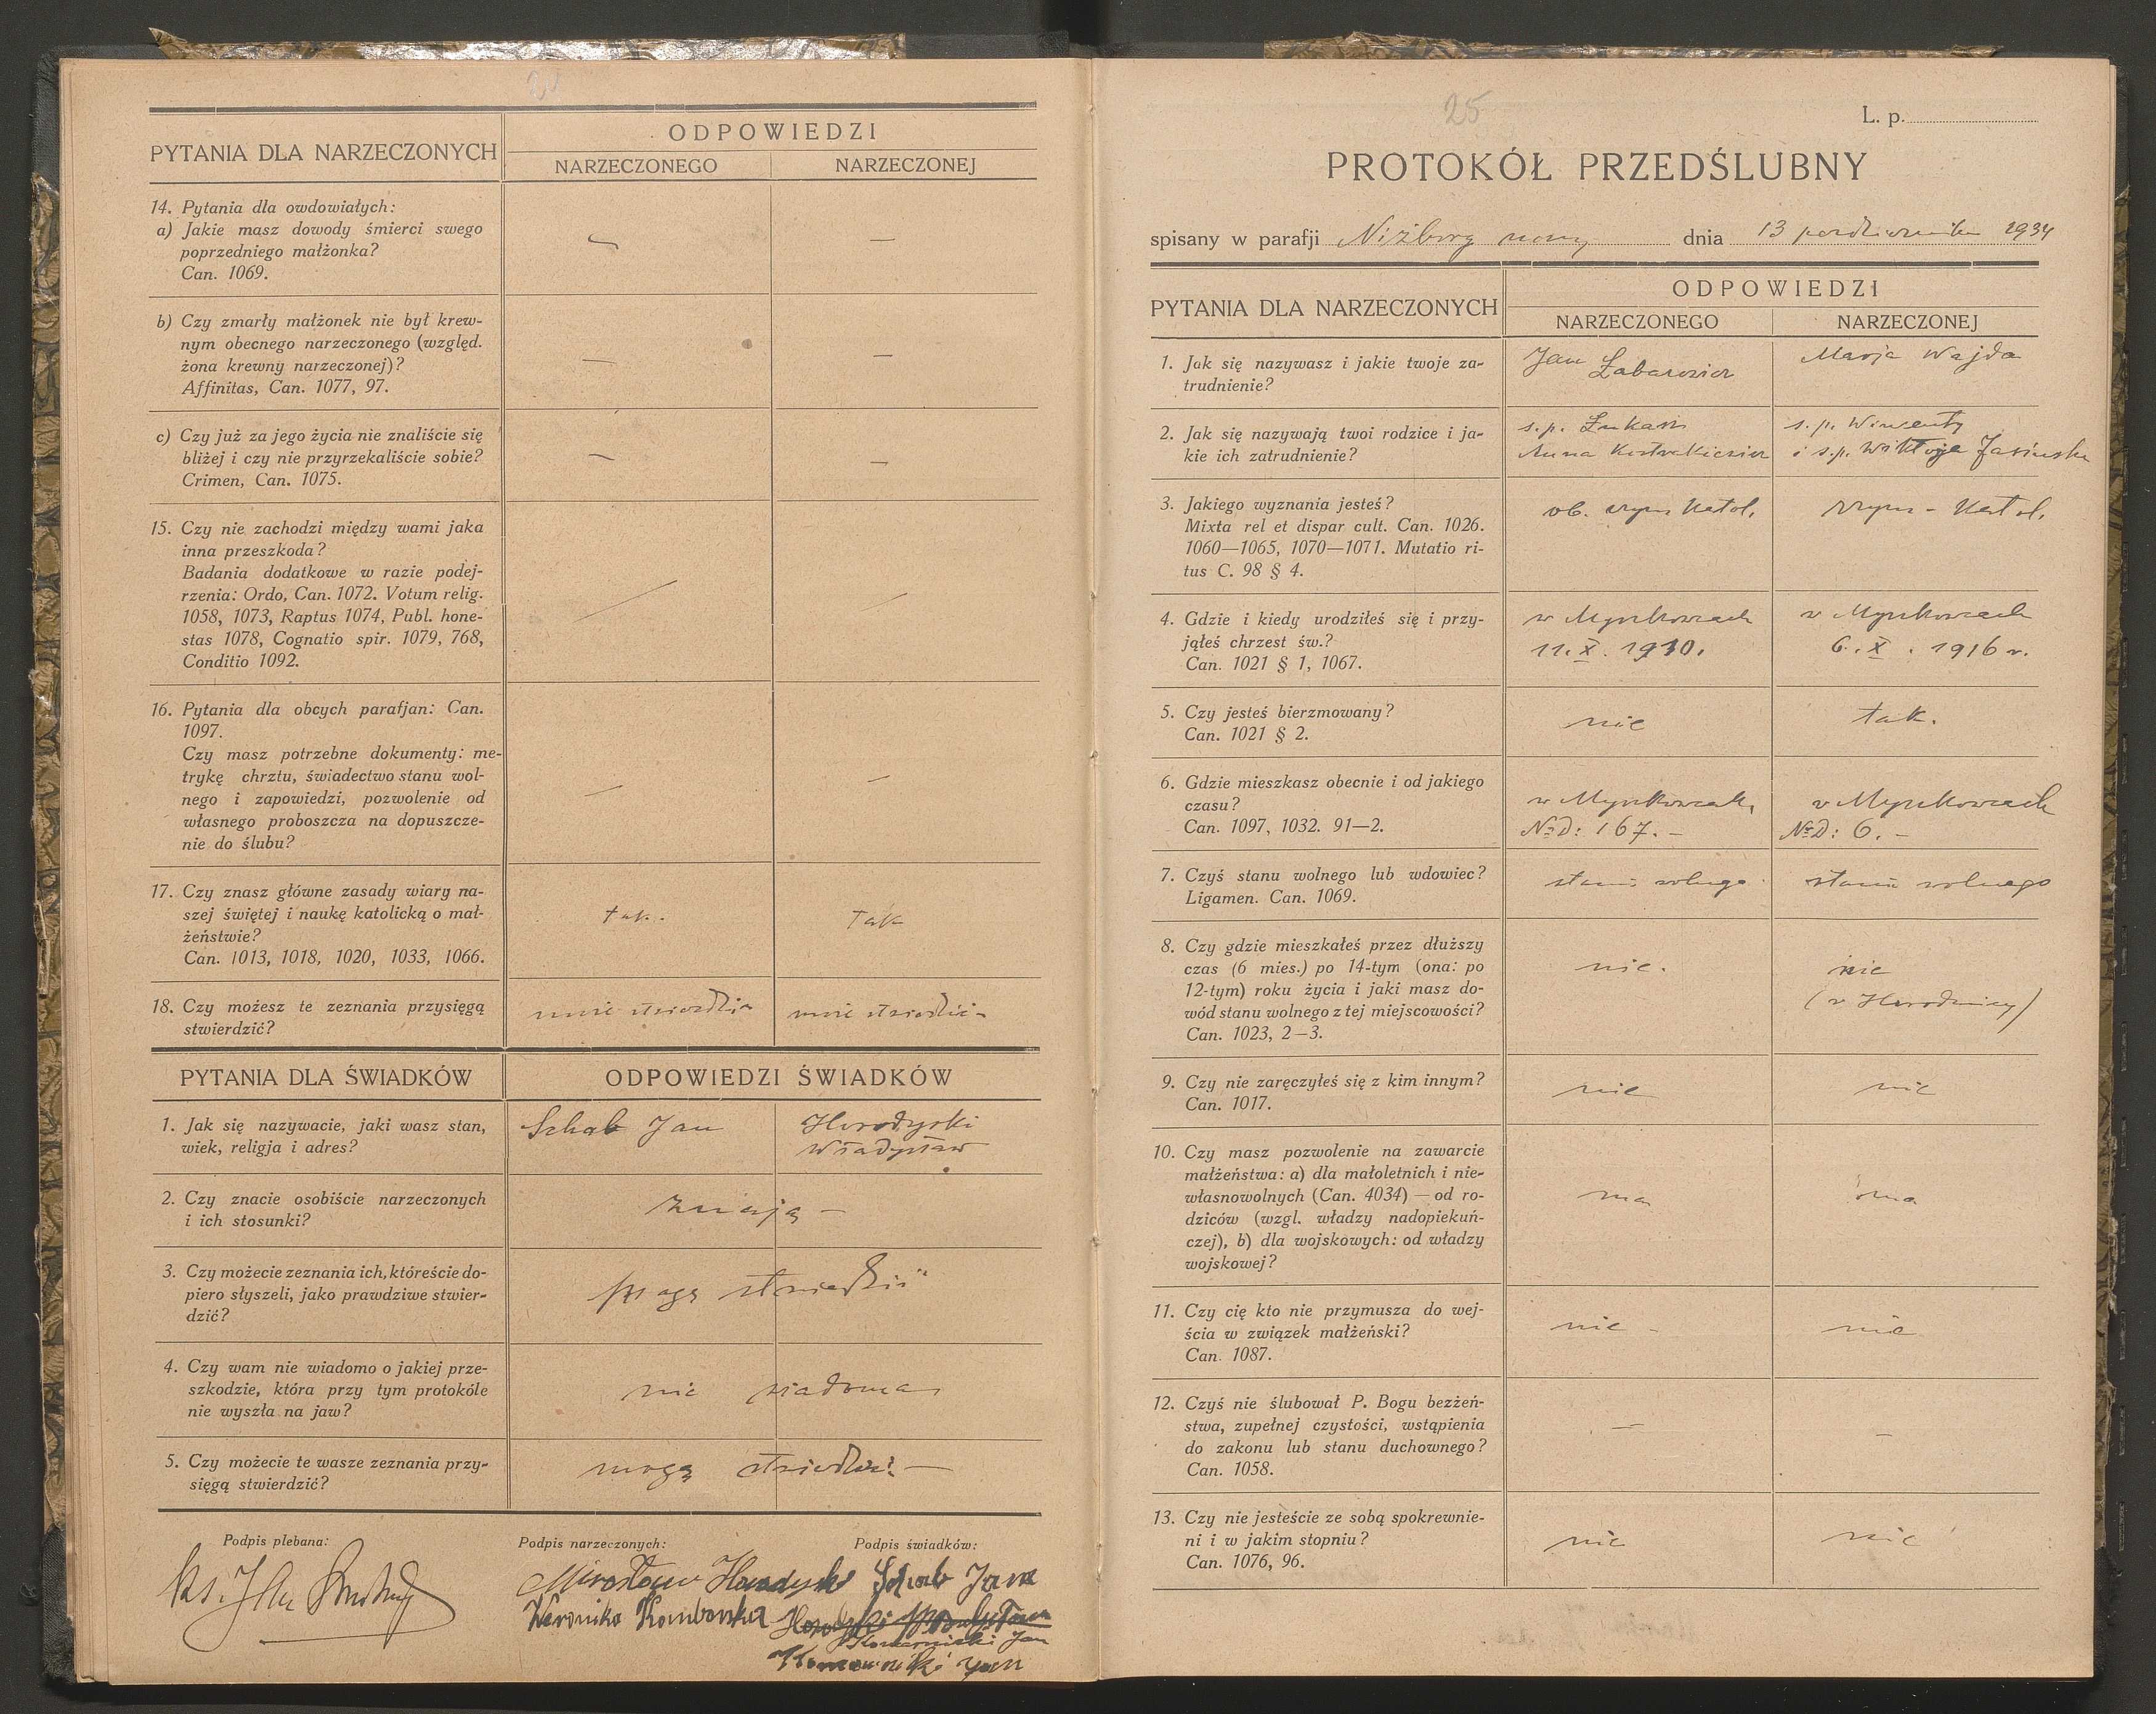 24
PYTANIA DLA NARZECZONYCH
ODPOWIEDZI
NARZECZONEGO
NARZECZONEJ
14. Pytania dla owdowiałych:
a) Jakie masz dowody śmierci swego
poprzedniego małżonka?
Can. 1069.
— —
b) Czy zmarły małżonek nie był krew-
nym obecnego narzeczonego (względ.
żona krewny narzeczonej)?
Affinitas, Can. 1077, 97.
— —
c) Czy już za jego życia nie znaliście się
bliżej i czy nie przyrzekaliście sobie?
Crimen, Can. 1075.
— —
15. Czy nie zachodzi między wami jaka
inna przeszkoda?
Badania dodatkowe w razie podej-
rzenia: Ordo, Can. 1072. Votum relig.
1058, 1073, Raptus 1074, Publ. hone-
stas 1078, Cognatio spir. 1079, 768,
Conditio 1092.
— —
16. Pytania dla obcych parafjan: Can.
1097.
Czy masz potrzebne dokumenty: me-
trykę chrztu, świadectwo stanu wol-
nego i zapowiedzi, pozwolenie od
własnego proboszcza na dopuszcze-
nie do ślubu?
— —
17. Czy znasz główne zasady wiary na-
szej świętej i naukę katolicką o mał-
żeństwie?
Can. 1013, 1018, 1020, 1033, 1066.
tak. tak
18. Czy możesz te zeznania przysięgą
stwierdzić?
PYTANIA DLA ŚWIADKÓW
ODPOWIEDZI ŚWIADKÓW
1. Jak się nazywacie, jaki wasz stan,
wiek, religja i adres?
Schab Jan
Horodyski
Władysław
2. Czy znacie osobiście narzeczonych
i ich stosunki?
znają —
3. Czy możecie zeznania ich, któreście do-
piero słyszeli, jako prawdziwe stwier-
dzić?
mogą stwierdzić
4. Czy wam nie wiadomo o jakiej prze-
szkodzie, która przy tym protokóle
nie wyszła na jaw?
nie wiadomo
5. Czy możecie te wasze zeznania przy-
sięgą stwierdzić?
mogą stwierdzić —
Podpis plebana:
Podpis narzeczonych:
Podpis świadków:
Ks. Jan
Mirosław Horodyski
Schab Jan
Weronika
Komarnicki Jan
Komarnicki Jan
25
L. p.
PROTOKÓŁ PRZEDŚLUBNY
spisany w parafji Niżborg nowy dnia 13 października 1934
PYTANIA DLA NARZECZONYCH
ODPOWIEDZI
NARZECZONEGO
NARZECZONEJ
1. Jak się nazywasz i jakie twoje za-
trudnienie?
Jan
Marja Wajda
2. Jak się nazywają twoi rodzice i ja-
kie ich zatrudnienie?
s.p. Łukasz
Anna
s.p. Wincenty
i s.p. Wiktorja Jasińska
3. Jakiego wyznania jesteś?
Mixta rel et dispar cult. Can. 1026.
1060—1065, 1070—1071. Mutatio ri-
tus C. 98 § 4.
ob. rzym Katol.
rzym - Katol.
4. Gdzie i kiedy urodziłeś się i przy-
jąłeś chrzest św.?
Can. 1021 § 1, 1067.
w Myszkowcach
11. X. 1910.
w Myszkowcach
6. X. 1916 r.
5. Czy jesteś bierzmowany?
Can. 1021 § 2.
nie
tak.
6. Gdzie mieszkasz obecnie i od jakiego
czasu?
Can. 1097, 1032. 91—2.
w Myszkowcach
Nr D: 167. –
w Myszkowcach
Nr D: 6. –
7. Czyś stanu wolnego lub wdowiec?
Ligamen. Can. 1069.
stanu wolnego
stanu wolnego
8. Czy gdzie mieszkałeś przez dłuższy
czas (6 mies.) po 14-tym (ona: po
12-tym) roku życia i jaki masz do-
wód stanu wolnego z tej miejscowości?
Can. 1023, 2—3.
nie.
nie
(w Horodnicy)
9. Czy nie zaręczyłeś się z kim innym?
Can. 1017.
nie
nie
10. Czy masz pozwolenie na zawarcie
małżeństwa: a) dla małoletnich i nie-
własnowolnych (Can. 4034) — od ro-
dziców (wzgl. władzy nadopiekuń-
czej), b) dla wojskowych: od władzy
wojskowej?
ma
ma
11. Czy cię kto nie przymusza do wej-
ścia w związek małżeński?
Can. 1087.
nie –
nie
12. Czyś nie ślubował P. Bogu bezżeń-
stwa, zupełnej czystości, wstąpienia
do zakonu lub stanu duchownego?
Can. 1058.
— –
13. Czy nie jesteście ze sobą spokrewnie-
ni i w jakim stopniu?
Can. 1076, 96.
nie
nie